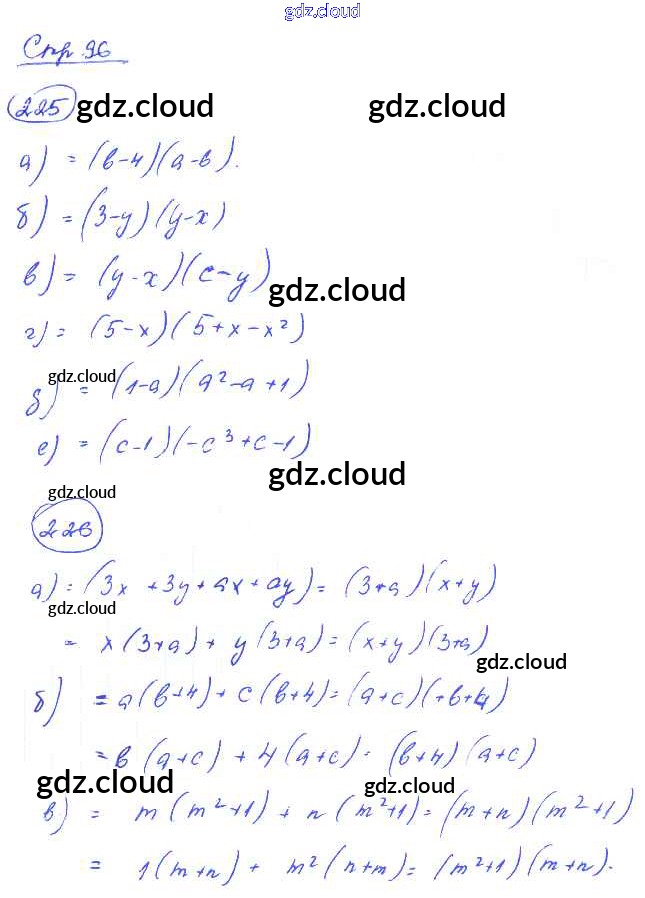 gdz.cloud
Стр 96
225 gdz.cloud gdz.cloud
а) = (в-4)(а-в).
б) = (3-y)(y-x)
в) = (y-x)(c-y)
gdz.cloud
г) = (5-x)(5+x-x²)
gdz.cloud
д) = (1-a)(a²-a+1)
е) = (c-1)(-c³+c-1)
gdz.cloud
gdz.cloud
226
а) = (3x+3y+ax+ay) = (3+a)(x+y)
gdz.cloud
= x(3+a) + y(3+a) = (x+y)(3+a)
gdz.cloud
б) = a(в+4) + c(в+4) = (a+c)(+в+4)
= в(a+c) + 4(a+c) = (в+4)(a+c)
gdz.cloud gdz.cloud
в) = m(m²+1) + n(m²+1) = (m+n)(m²+1)
= 1(m+n) + m²(n+m) = (m²+1)(m+n).